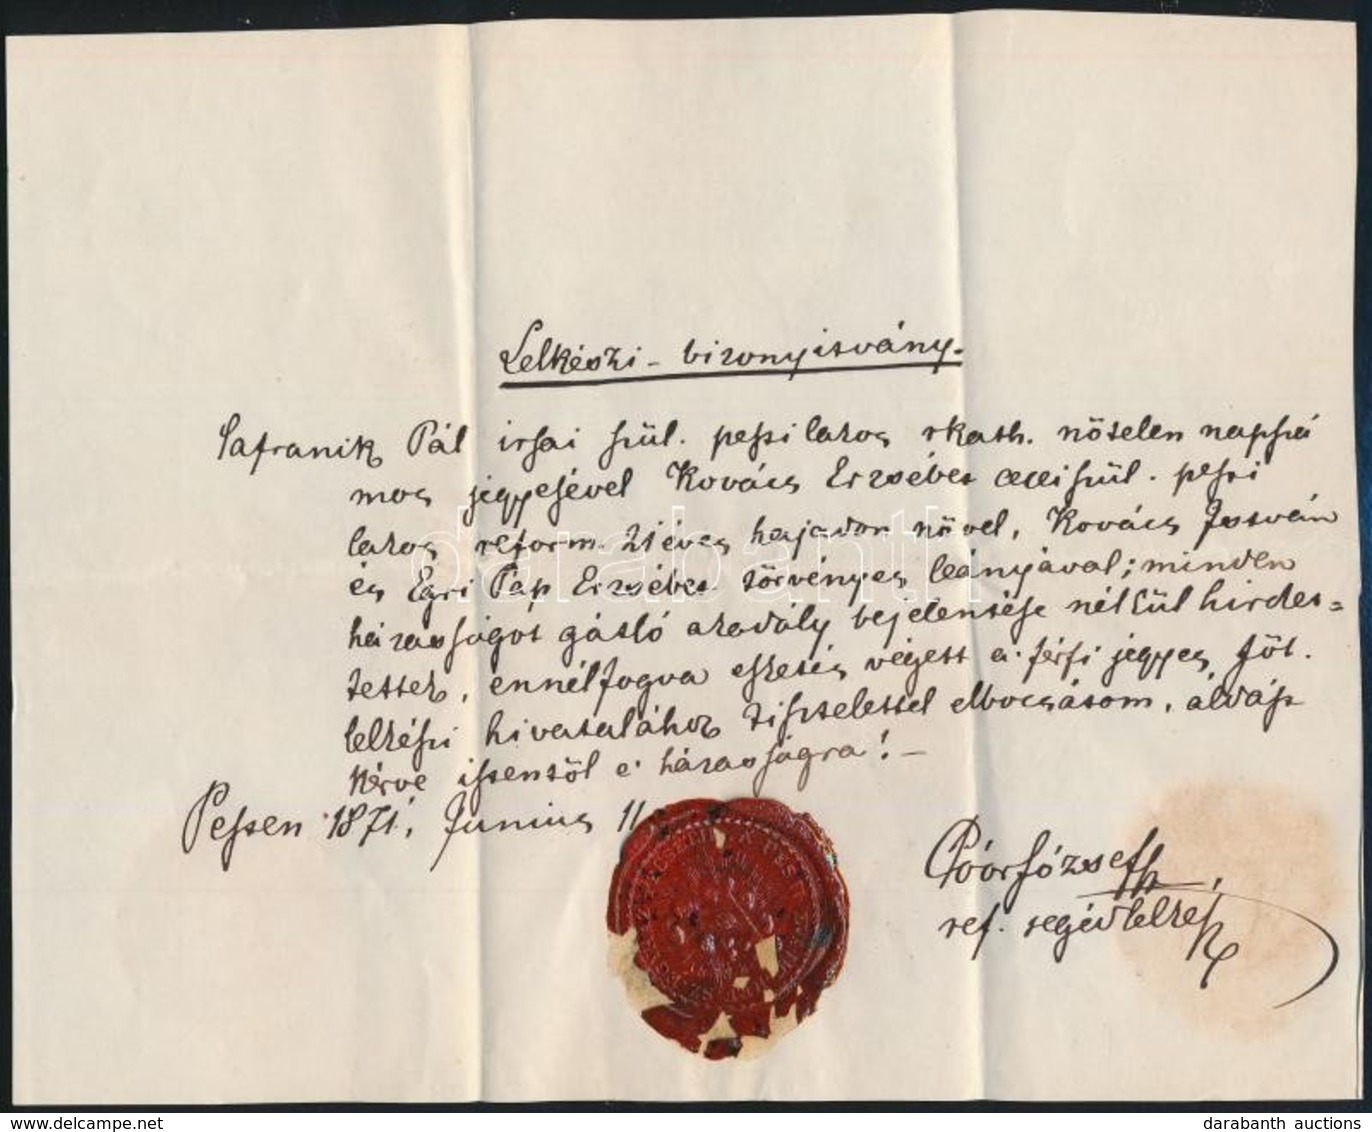 Lelkészi - bizonyitvány.
Safranik Pál irsai szül. pesti lakos rkath. nőtelen napszá
mos jegyesével Kovács Erzsébet szül. pesti
lakos reform. 21 éves hajadon növel, Kovács István
és Egri Pap Erzsébet törvényes leányával; minden
házasságot gátló akadály bejelentése nélkül hirdet=
tettek, ennélfogva esketés végett a férfi jegyes, főt.
lelkészi hivatalához tisztelettel elbocsátom, áldást
kérve istentől e házasságra! -
Pesten 1871. Junius 11
Poór József
ref. segédlelkész
darabanth
darabanth auctions